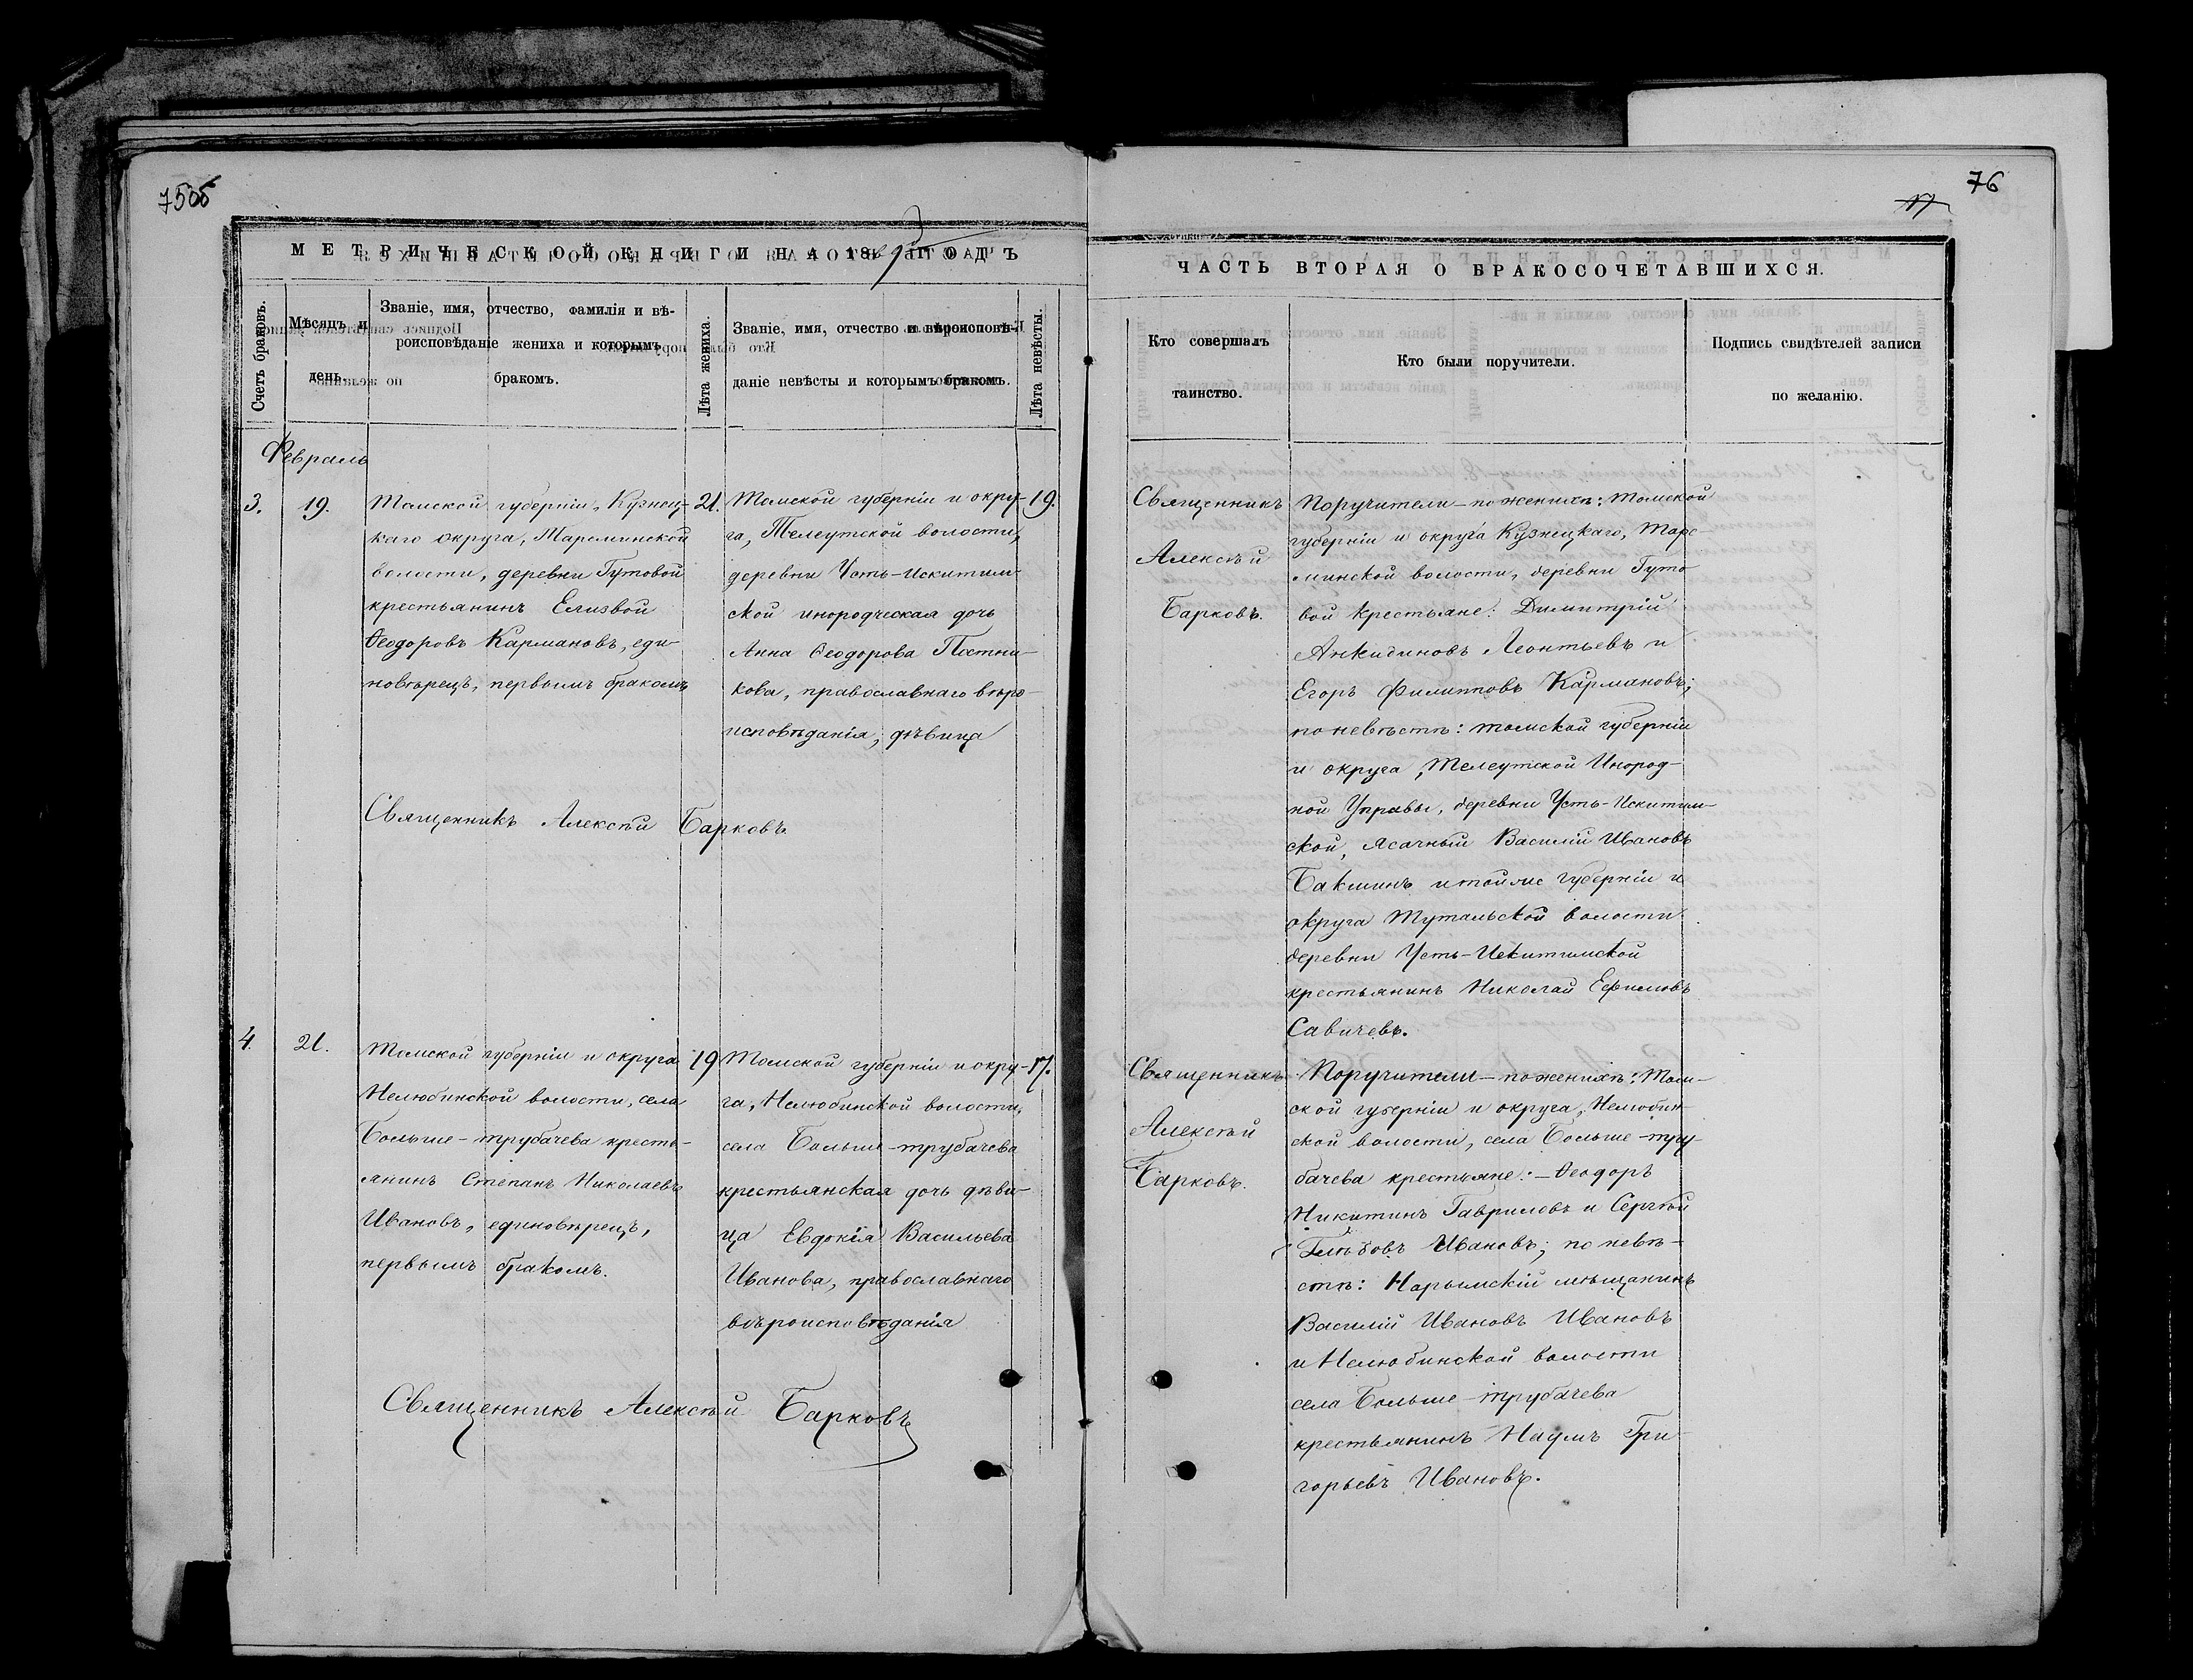 76
МЕТРИЧЕСКОЙ КНИГИ НА 18 ГОДЪ
Счетъ браковъ.
Мѣсяцъ и
день.
Званіе, имя, отчество, фамилія и вѣ-
роисповѣданіе жениха и которымъ
бракомъ.
Лѣта жениха.
Званіе, имя, отчество и вѣроисповѣ-
даніе невѣсты и которымъ бракомъ.
Лѣта невѣсты.
Февраль
3.
19.
Томской губерніи, Кузнец-
каго округа, Тарсминской
волости, деревни Гутовой
крестьянинъ Елизвой
Ѳеодоровъ Кармановъ, еди-
новѣрецъ, первымъ бракомъ
21.
Томской губерніи и окру-
га, Телеутской волости,
деревни Усть-Искитим-
ской инородческая дочь
Анна Ѳеодорова Постни-
кова, православнаго вѣро-
исповѣданія, дѣвица
19.
Священникъ Алексѣй Барковъ.
4.
21.
Томской губерніи и округа
Нелюбинской волости, села
Больше-трубачева кресть-
янинъ Степанъ Николаевъ
Ивановъ, единовѣрецъ,
первымъ бракомъ.
19
Томской губерніи и окру-
га, Нелюбинской волости,
села Больше-трубачева
крестьянская дочь дѣви-
ца Евдокія Васильева
Иванова, православнаго
вѣроисповѣданія
17.
Священникъ Алексѣй Барковъ
ЧАСТЬ ВТОРАЯ О БРАКОСОЧЕТАВШИХСЯ.
Кто совершалъ
таинство.
Кто были поручители.
Подпись свидѣтелей записи
по желанію.
Священникъ
Алексѣй
Барковъ.
Поручители-по женихѣ: Томской
губерніи и округа Кузнецкаго, Тарс-
минской волости, деревни Гуто-
вой крестьяне: Димитрій
Анкидиновъ Леонтьевъ и
Егоръ Филипповъ Кармановъ;
по невѣстѣ: томской губерніи
и округа, Телеутской Инород-
ной Управы, деревни Усть-Искитим-
ской, ясачный Василій Ивановъ
Бакшинъ и той же губерніи и
округа Тутальской волости
деревни Усть-Искитимской
крестьянинъ Николай Ефимовъ
Савичевъ.
Священникъ
Алексѣй
Барковъ.
Поручители-по женихѣ: Том-
ской губерніи и округа, Нелюбин-
ской волости, села Больше-тру-
бачева крестьяне:-Ѳеодоръ
Никитинъ Гавриловъ и Сергѣй
Глѣбовъ Ивановъ; по невѣ-
стѣ: Нарымскій мѣщанинъ
Василій Ивановъ Ивановъ
и Нелюбинской волости
села Больше-трубачева
крестьянинъ Наумъ Гри-
горьевъ Ивановъ.